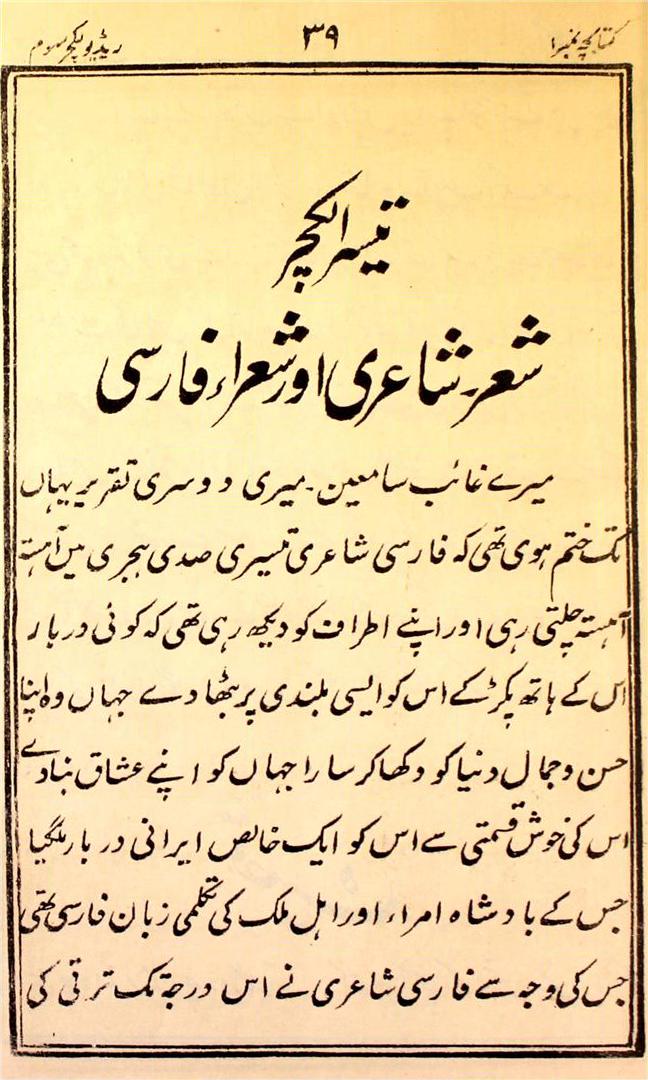 کتابچہ نمبر۱ ۳۹ ریڈیو لکچر سوم
تیسرا لکچر
شعر۔شاعری اور شعراء فارسی
میرے غائب سامعین۔میری دوسری تقریر یہاں
تک ختم ہوی تھی کہ فارسی شاعری تیسری صدی ہجری میں آہستہ
آہستہ چلتی رہی اور اپنے اطراف کو دیکھ رہی تھی کہ کوئی دربار
اس کے ہاتھ پکڑ کے اس کو ایسی بلندی پر بٹھا دے جہاں وہ اپنا
حسن و جمال دنیا کو دکھا کر سارا جہاں کو اپنے عشاق بنادے
اس کی خوش قسمتی سے اس کو ایک خالص ایرانی دربار ملگیا
جس کے بادشاہ امراء اور اہل ملک کی تکلمی زبان فارسی تھی
جس کی وجہ سے فارسی شاعری نے اس درجۃ تک ترقی کی